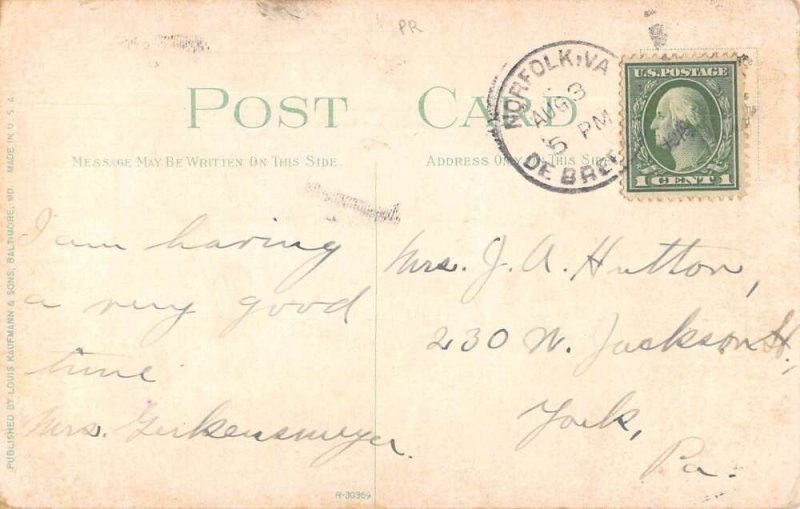 PR
POST CARD
MESSAGE MAY BE WRITTEN ON THIS SIDE.
ADDRESS ONLY ON THIS SIDE
NORFOLK, VA
AUG 3
5 PM
U.S. POSTAGE
1 CENT 1
I am having
a very good
time
Mrs. Gerkensmeyer.
Mrs. J. A. Hutton,
230 W. Jackson St,
York,
Pa.
PUBLISHED BY LOUIS KAUFMANN & SONS, BALTIMORE, MD. MADE IN U.S.A.
R-30369